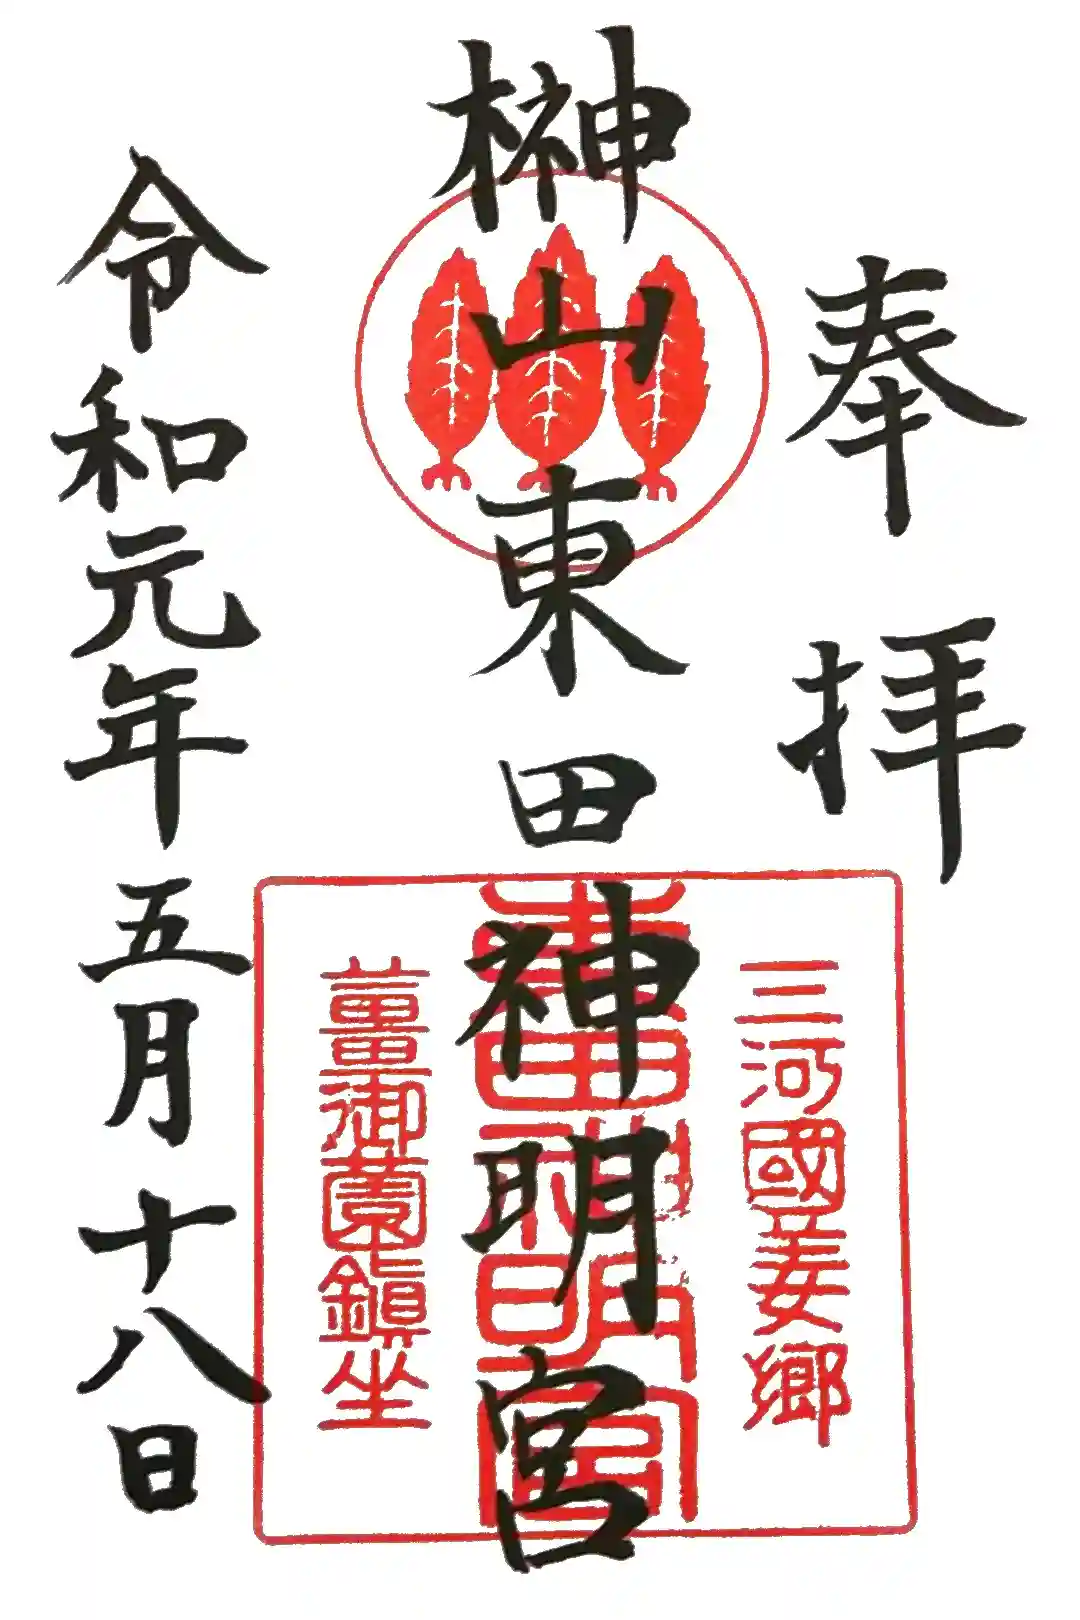 奉拝
榊山東田神明宮
令和元年五月十八日
三河國姜郷
東田神明宮
薑御薗鎮坐